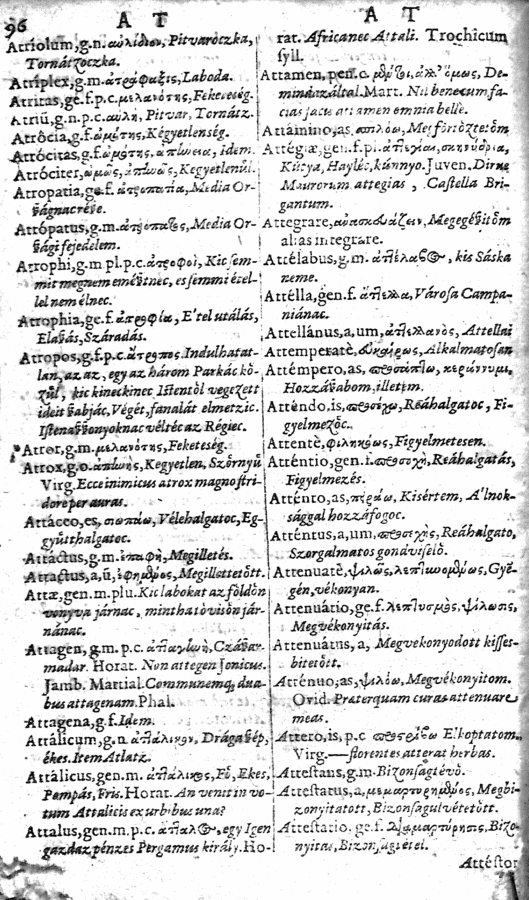 96
A T
Atriolum, g.n. αὐλίδιον, Pitvaroczka,
Tornátzoczka.
Atriplex, g.m. ἀτράφαξις, Laboda.
Atritas, ge.f.p.c. μελανότης, Feketeség.
Atriū, g.n.p.c. αυλή, Pitvar, Tornátz.
Atrôcia, g.f. ὠμότης, Kégyetlenség.
Atrócitas, g.f. ὠμότης, ἀπώεια, idem.
Atróciter, ὠμῶς, Kegyetlenűl.
Atropatia, ge.f. ἀτροπατία, Media Or-
Atrópatus, g.m. ἀτρόπατος, Media Or-
ſági fejedelem.
Atrophi, g.m pl.p.c. ἀτροφοὶ, Kic ſem-
mit megnem eméſtnec, es ſemmi étel-
lel nem élnec.
Atrophia, ge.f. ἀτροφία, E'tel utálás,
Elaſzás, Száradás.
Atropos, g.f.p.c. ἄτροπος. Indulhatat-
lan, az az, egy az három Parkác kö-
zűl, kic kineckinec Iſtentől vegezett
ideit ſzabjác, Végét, fanalát elmetzic.
Iſtenaſzſzonyoknac véltéc az Régiec.
Atror, g.m. μελανότης, Feketeség.
Atrox, g.o. ἀπωὴς, Kegyetlen, Szörnyű
Virg. Ecce inimicus atrox magno ſtri-
dore per auras.
Attáceo, es, σιωπάω, Vélehalgatoc, Eg-
gyűtthalgatoc.
Attáctus, g.m. ἐπαφὴ, Megilletés.
Attactus, a, ū, Megillettetőtt.
Attæ, gen.m.plu. Kic labokat az főldön
vonyva járnac, mintha tóvisőn jár-
nánac.
Attagen, g.m. p.c. ἀτlαγlωὴ, Czáſzar-
madar. Horat. Non attegen Jonicus.
Jamb. Martial. Communemq; dua-
bus attagenam. Phal.
Attagena, g.f. Idem.
Attàlicum, g.n. ἀτlάλικον, Drágaſzép,
ékes. Item Atlatz.
Attàlicus, gen.m. ἀτlάλικος, Fő, Ekes,
Pompás, Friſs. Horat. An venit in vo-
tum Attalicis ex urbibus una?
Attalus, gen.m.p.c. ἄτlαλος, egy Igen
gazdag pénzes Pergamus király. Ho-
A T
rat. Africanec Attali. Trochicum
ſyll.
Attamen, pen.c. ἀλλ' ὅμως, De-
mindazáltal. Mart. Nil bene cum fa-
cias facis attamen omnia belle.
Attáminο, as,
Attégiæ, gen.f.pl.
Kúcya, Haylec, kúnnyo. Juven. Dirue
Maurorum attegias, Caſtella Bri-
gantum.
Attegrare, Megegéſzitőm
alias integrare.
Attélabus, g.m. ἀτlέλαβος, kis Sáska
neme.
Atélla, gen.f. ἄτελλα, Városa Campa-
niánac.
Attellánus, a, um, ἀτελλανὸς, Attellai
Attemperatè, εὐκαίρως, Alkalmatoſan
Attémpero, as, κεράννυμι,
Hozzáſzabom, illetem.
Atténdo, is, προσέχω, Reáhalgatoc, Fi-
gyelmezőc.
Attentè, Figyelmetesen.
Atténtio, gen.f. προσοχὴ, Reáhalgatás,
Figyelmezés.
Atténto, as, πειράω, Kisértem, A'lnok-
sággal hozzáfogoc.
Atténtus, a, um, προσεχὴς, Reáhalgato,
Szorgalmatos gondviſelő.
Attenuatè, ψιλῶς, Gyén-
gén, vékonyan.
Attenuátio, ge.f. λεπτυσμὸς, ψίλωσις,
Megvékonyitás.
Attenuátus, a, Megvekonyodott kiſſes-
bitetőtt.
Atténuo, as, ψιλόω, Megvékonyitom.
Ovid. Præterquam curas attenuare
meas.
Attero, is, p.c Elkoptatom.
Virg. — florentes atterat herbas.
Atteſtans, g.m. Bizonſágtévő.
Atteſtatus, a, Megbi-
zonyitatott, Bizonſagul vétetőtt.
Atteſtatio, ge.f. Bizo-
nyitás, Bizonſágtétel.
Attéſtor